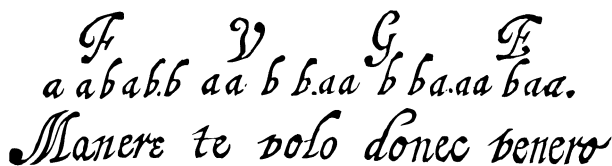 F V G E
a a b a b. b a a b b. a a b b a. a a b a a.
Manere te volo donec venero